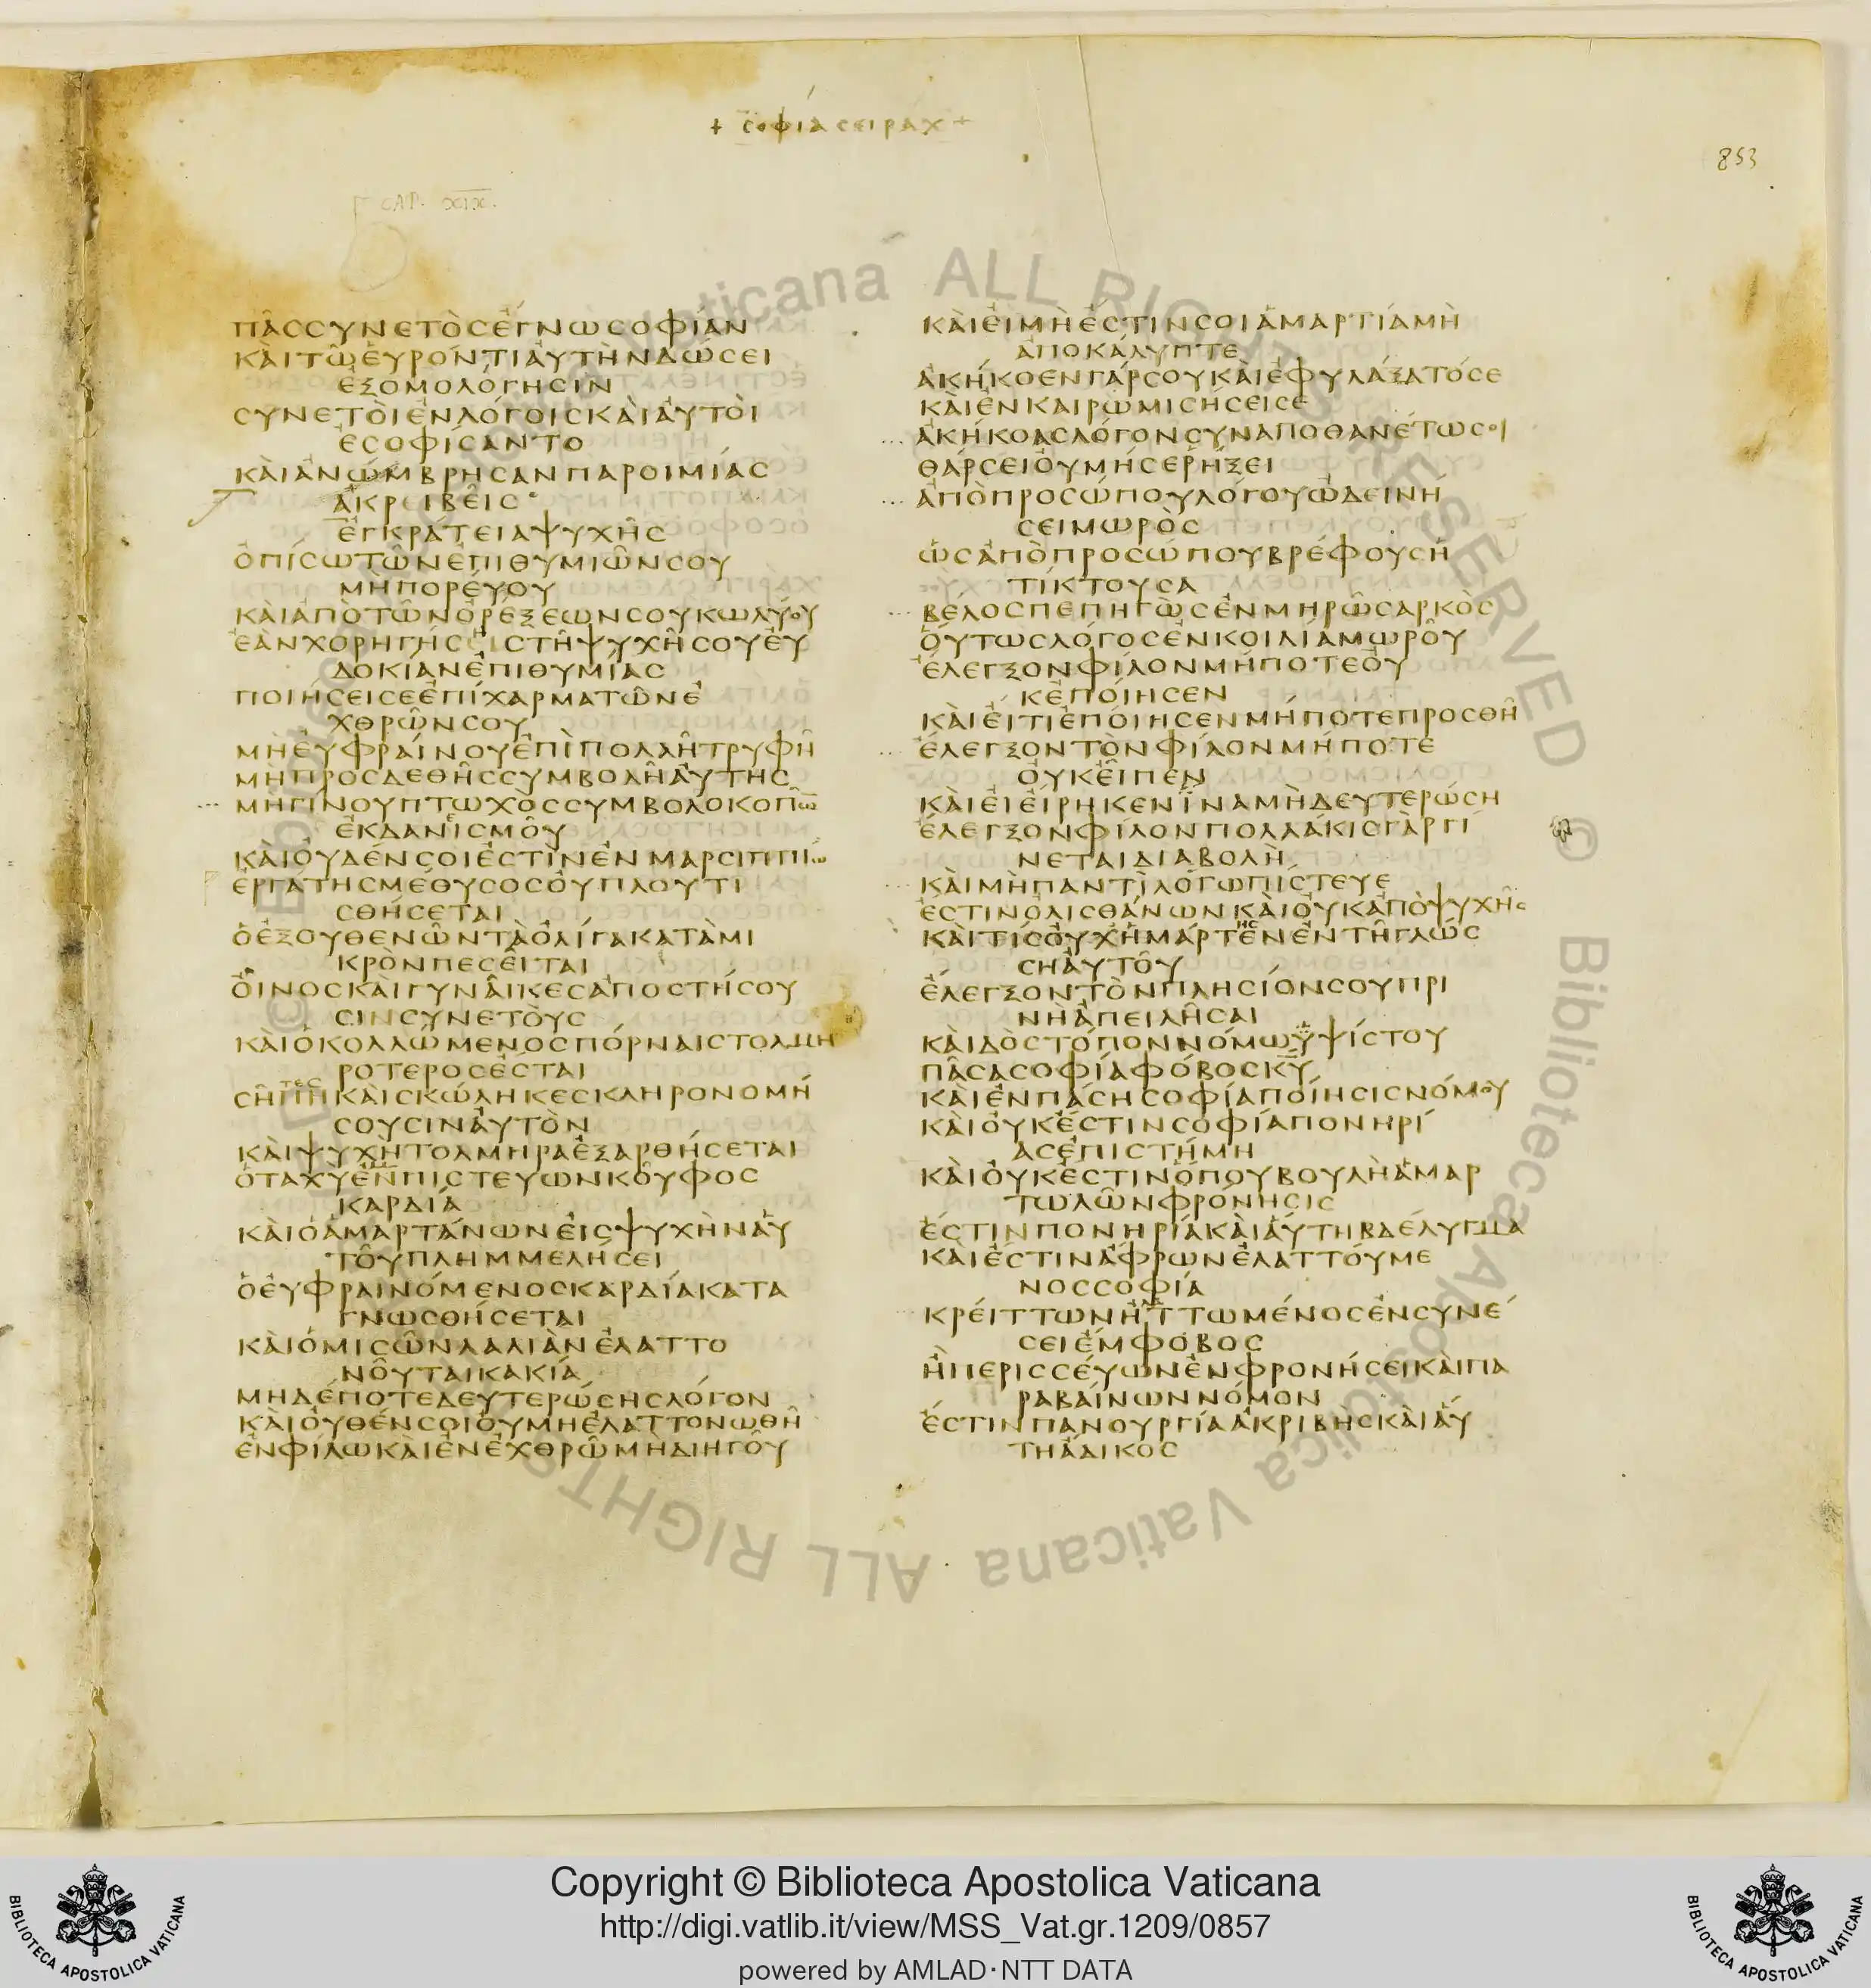 + σοφία σειραχ +
853
CAP. XIX.
πᾶσσυνετὸσέγνωσοφίαν
καὶτῶεὑρόντιαὐτὴνδώσει
ἐξομολόγησιν
συνετοὶἐνλόγοισκαὶαὐτοὶ
ἐσοφίσαντο
καὶἀνώμβρησανπαροιμίασ
ἀκρειβεῖσ
ἐγκράτειαψυχῆσ
ὀπίσωτῶνἐπιθυμιῶνσου
μὴπορέυου
καὶἀπὸτῶνὀρέξεωνσουκωλύου
ἐὰνχορηγήσηιστῆψυχῆσουἐυ
δοκίανἐπιθυμίασ
ποιήσεισεἐπίχαρματῶνἐ
χθρῶνσου
μὴἐυφραίνουἐπὶπολλῆτρυφῆ
μὴπροσδεθῆσσυμβολῆἀυτησ
μηγίνουπτωχὸσσυμβολοκοπῶ̅
ἐκδανεισμοῦ
καὶὀυδένσοιἐστὶνἐνμαρσιππιω
ἐργάτησμέθυσοσὀυπλουτι
σθήσεται
ὁἐξουθενῶντὰὀλίγακατὰμι
κρὸνπεσεῖται
ὀῖνοσκαὶγυνᾶικεσαποστήσου
σινσυνετὸυσ
καὶὁκολλώμενοσπόρναιστολμη
ροτεροσέσται
σῆτεσπηκαὶσκώληκεσκληρονομή
σουσιναὐτὸν
καὶψυχὴτολμηραἐξαρθήσεται
ὁταχὺἐνπιστευωνκοῦφοσ
καρδιά
καὶὁἁμαρτάνωνεἰσψυχὴνἁυ
τοῦπλημμελήσει
ὁἐυφραινόμενοσκαρδίακατα
γνωσθήσεται
καὶὁμισῶνλαλιὰνἐλαττο
νοῦταικακία
μηδέποτεδευτερώσησλόγον
καὶὀυθένσοιὀυμηἐλαττονωθῆ
ἐνφίλωκαὶἐνἐχθρῶμηδιηγοῦ
καὶἐιμὴἐστινσοιἁμαρτίαμὴ
ἀποκάλυπτε
ἀκήκοενγάρσουκαὶἐφυλάξατόσε
καὶἐνκαιρῶμισήσεισε
ἀκήκοασλόγονσυναποθανέτωσοι
θάρσειὀυμήσερήξει
ἀπὸπροσώπουλόγουὠδεινή
σειμωρὸσ
ὡσἀπὸπροσώπουβρέφουσἡ
τίκτουσα
βέλοσπεπηγὼσἐνμηρῶσαρκὸσ
ὅυτωσλόγοσἐνκοιλίαμωροῦ
ἔλεγξονφίλονμήποτεὀυ
κἐποίησεν
καὶἐίτιἐποίησενμήποτεπροσθῆ
ἔλεγξοντὸνφίλονμήποτε
ὀυκεῖπεν
καὶἐιἐίρηκενἵναμὴδευτερώση
ἔλεγξονφίλονπολλάκισγὰργί
νεταιδιαβολὴ
καὶμὴπαντὶλόγωπίστευε
ἔστινὀλισθάνωνκαὶὀυκἀπὸψυχῆσ
καὶτίσὀυχἡμάρτενησἐντῆγλώσ
σηἀυτοῦ
ἔλεγξοντὸνπλησίονσουπρι
νὴἀπειλῆσαι
καὶδὸστόπονμνόμωὑψίστου
πᾶσασοφίαφόβοσκῦ
καὶἐνπάσησοφίαποίησισνόμου
καὶὀυκέστινσοφίαπονηρί
ασἐπιστήμη
καὶὀυκἐστινὅπουβουλὴἁμαρ
τωλῶνφρόνησισ
ἔστινπονηρίακαὶἁύτηβδέλυγμα
καὶέστινἄφρωνἐλαττόυμε
νοσσοφία
κρέιττωνἡττωμένοσἐνσυνέ
σειἔμφοβοσ
ἢπερισσέυωνἐνφρονήσεικαὶπα
ραβαίνωννόμον
ἔστινπανουργίαἀκριβὴσκαὶἁύ
τηἄδικοσ
Copyright © Biblioteca Apostolica Vaticana
http://digi.vatlib.it/view/MSS_Vat.gr.1209/0857
powered by AMLAD·NTT DATA
BIBLIOTECA APOSTOLICA VATICANA
BIBLIOTECA APOSTOLICA VATICANA
© Biblioteca Apostolica Vaticana ALL RIGHTS RESERVED © Biblioteca Apostolica Vaticana ALL RIGHTS